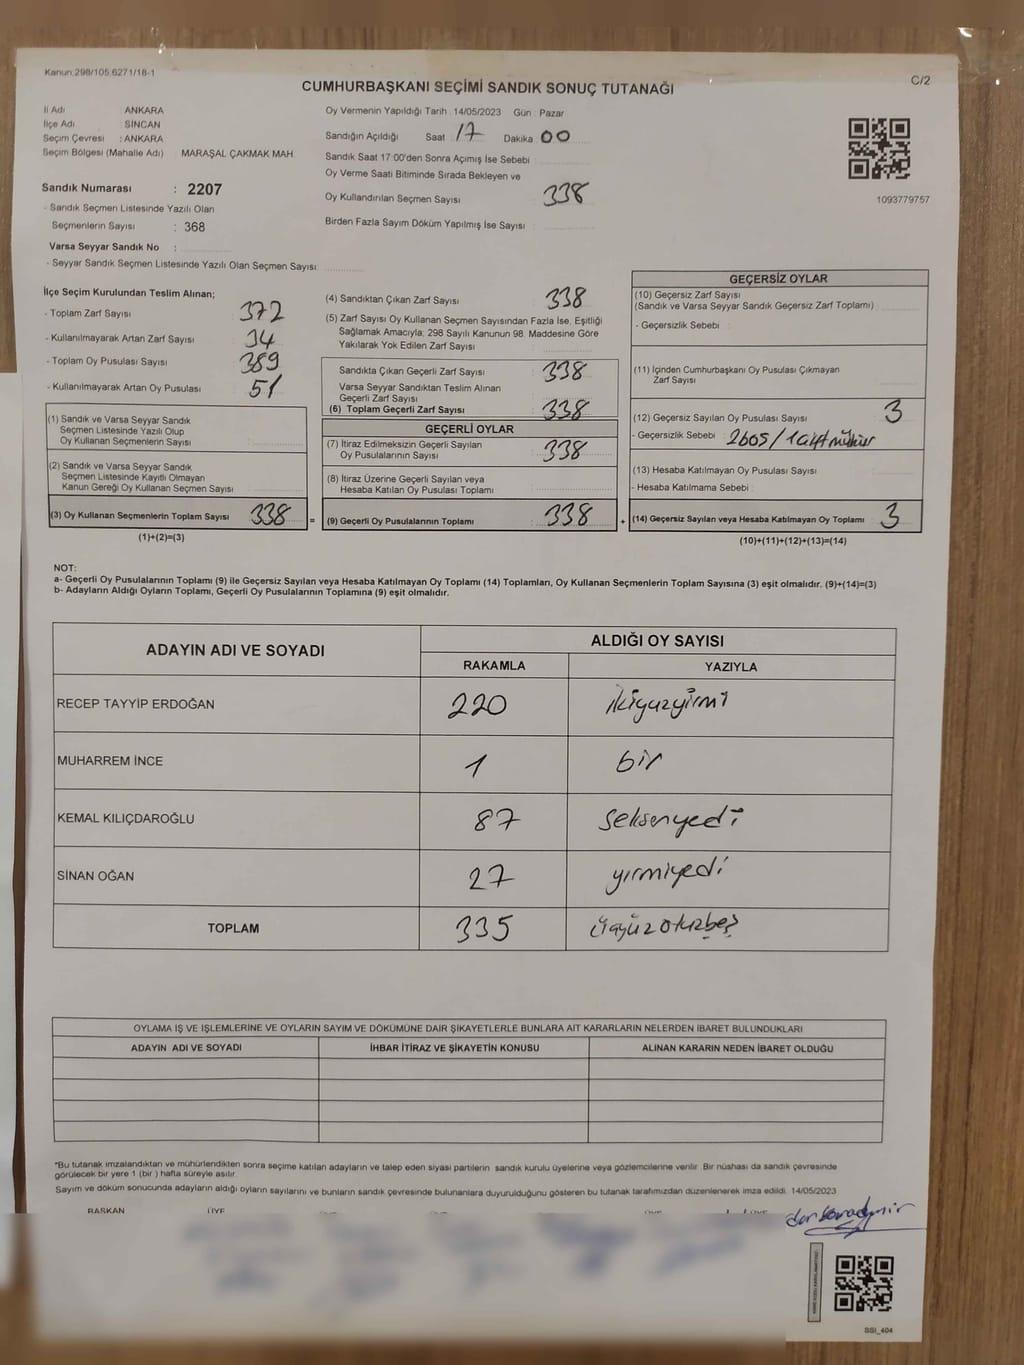 Kanun:298/105,6271/18-1
C/2
CUMHURBAŞKANI SEÇİMİ SANDIK SONUÇ TUTANAĞI
İl Adı : ANKARA
İlçe Adı : SİNCAN
Seçim Çevresi : ANKARA
Seçim Bölgesi (Mahalle Adı) MARAŞAL ÇAKMAK MAH.
Sandık Numarası : 2207
- Sandık Seçmen Listesinde Yazılı Olan
Seçmenlerin Sayısı : 368
Varsa Seyyar Sandık No :
- Seyyar Sandık Seçmen Listesinde Yazılı Olan Seçmen Sayısı:
Oy Vermenin Yapıldığı Tarih : 14/05/2023 Gün : Pazar
Sandığın Açıldığı Saat : 17 Dakika : 00
Sandık Saat 17:00'den Sonra Açımış İse Sebebi :
Oy Verme Saati Bitiminde Sırada Bekleyen ve
Oy Kullandırılan Seçmen Sayısı : 338
Birden Fazla Sayım Döküm Yapılmış İse Sayısı :
1093779757
İlçe Seçim Kurulundan Teslim Alınan;
- Toplam Zarf Sayısı : 372
- Kullanılmayarak Artan Zarf Sayısı : 34
- Toplam Oy Pusulası Sayısı : 389
- Kullanılmayarak Artan Oy Pusulası : 51
(1) Sandık ve Varsa Seyyar Sandık
Seçmen Listesinde Yazılı Olup
Oy Kullanan Seçmenlerin Sayısı :
(2) Sandık ve Varsa Seyyar Sandık
Seçmen Listesinde Kayıtlı Olmayan
Kanun Gereği Oy Kullanan Seçmen Sayısı :
(3) Oy Kullanan Seçmenlerin Toplam Sayısı : 338
(1)+(2)=(3)
=
(4) Sandıktan Çıkan Zarf Sayısı : 338
(5) Zarf Sayısı Oy Kullanan Seçmen Sayısından Fazla İse, Eşitliği
Sağlamak Amacıyla; 298 Sayılı Kanunun 98. Maddesine Göre
Yakılarak Yok Edilen Zarf Sayısı :
Sandıkta Çıkan Geçerli Zarf Sayısı : 338
Varsa Seyyar Sandıktan Teslim Alınan
Geçerli Zarf Sayısı :
(6) Toplam Geçerli Zarf Sayısı : 338
GEÇERLİ OYLAR
(7) İtiraz Edilmeksizin Geçerli Sayılan
Oy Pusulalarının Sayısı : 338
(8) İtiraz Üzerine Geçerli Sayılan veya
Hesaba Katılan Oy Pusulası Toplamı :
(9) Geçerli Oy Pusulalarının Toplamı : 338
+
GEÇERSİZ OYLAR
(10) Geçersiz Zarf Sayısı
(Sandık ve Varsa Seyyar Sandık Geçersiz Zarf Toplamı) :
- Geçersizlik Sebebi :
(11) İçinden Cumhurbaşkanı Oy Pusulası Çıkmayan
Zarf Sayısı :
(12) Geçersiz Sayılan Oy Pusulası Sayısı : 3
- Geçersizlik Sebebi : 2boş/1çift mühür
(13) Hesaba Katılmayan Oy Pusulası Sayısı :
- Hesaba Katılmama Sebebi :
(14) Geçersiz Sayılan veya Hesaba Katılmayan Oy Toplamı : 3
(10)+(11)+(12)+(13)=(14)
NOT:
a- Geçerli Oy Pusulalarının Toplamı (9) ile Geçersiz Sayılan veya Hesaba Katılmayan Oy Toplamı (14) Toplamları, Oy Kullanan Seçmenlerin Toplam Sayısına (3) eşit olmalıdır. (9)+(14)=(3)
b- Adayların Aldığı Oyların Toplamı, Geçerli Oy Pusulalarının Toplamına (9) eşit olmalıdır.
ADAYIN ADI VE SOYADI
ALDIĞI OY SAYISI
RAKAMLA YAZIYLA
RECEP TAYYİP ERDOĞAN 220 ikiyüzyirmi
MUHARREM İNCE 1 bir
KEMAL KILIÇDAROĞLU 87 seksenyedi
SİNAN OĞAN 27 yirmiyedi
TOPLAM 335 üçyüzotuzbeş
OYLAMA İŞ VE İŞLEMLERİNE VE OYLARIN SAYIM VE DÖKÜMÜNE DAİR ŞİKAYETLERLE BUNLARA AİT KARARLARIN NELERDEN İBARET BULUNDUKLARI
ADAYIN ADI VE SOYADI İHBAR İTİRAZ VE ŞİKAYETİN KONUSU ALINAN KARARIN NEDEN İBARET OLDUĞU
*Bu tutanak imzalandıktan ve mühürlendikten sonra seçime katılan adayların ve talep eden siyasi partilerin sandık kurulu üyelerine veya gözlemcilerine verilir. Bir nüshası da sandık çevresinde
görülecek bir yere 1 (bir) hafta süreyle asılır.
Sayım ve döküm sonucunda adayların aldığı oyların sayılarını ve bunların sandık çevresinde bulunanlara duyurulduğunu gösteren bu tutanak tarafımızdan düzenlenerek imza edildi. 14/05/2023
BAŞKAN ÜYE
SSI_404